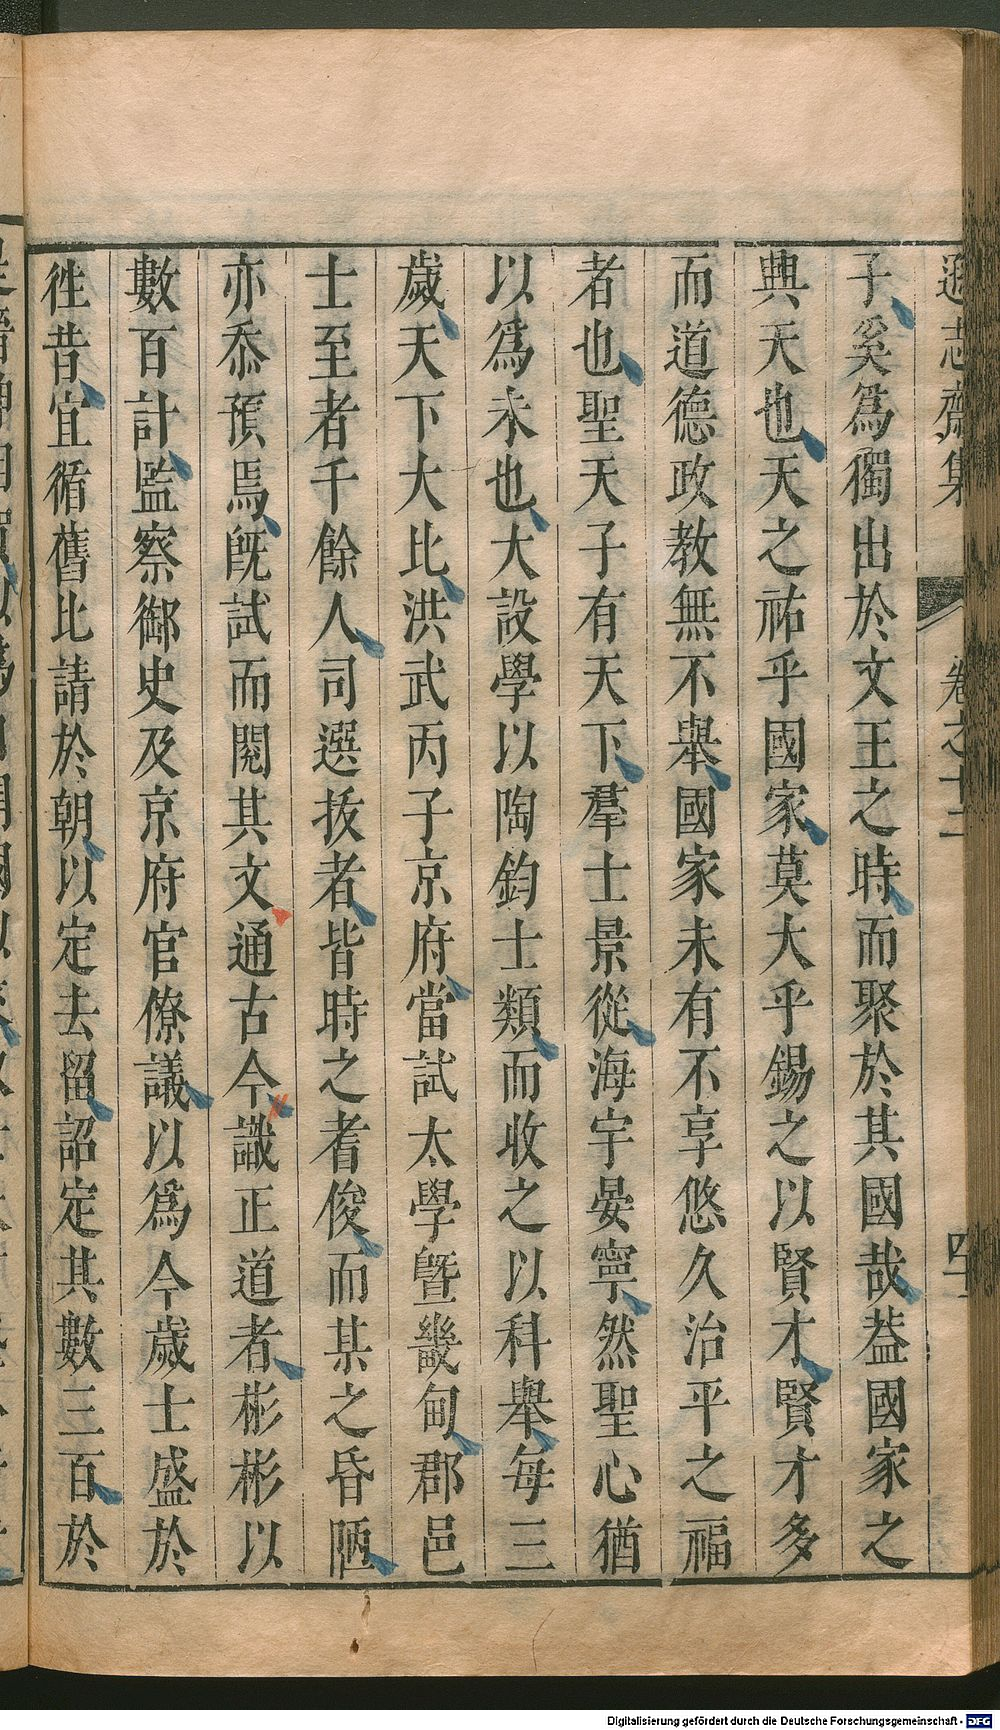 遜志齋集 卷之十二 四十
子奚爲獨出於文王之時而聚於其國哉葢國家之
興天也天之祐乎國家莫大乎錫之以賢才賢才多
而道德政教無不舉國家未有不享悠久治平之福
者也聖天子有天下羣士景從海宇晏寧然聖心猶
以爲未也大設學以陶鈞士類而收之以科舉每三
歲天下大比洪武丙子京府當試太學曁畿甸郡邑
士至者千餘人司選拔者皆時之耆俊而某之昏陋
亦忝預焉旣試而閱其文通古今識正道者彬彬以
數百計監察御史及京府官僚議以爲今歲士盛於
徃昔宜循舊比請於朝以定去留詔定其數三百於
Digitalisierung gefördert durch die Deutsche Forschungsgemeinschaft - DFG